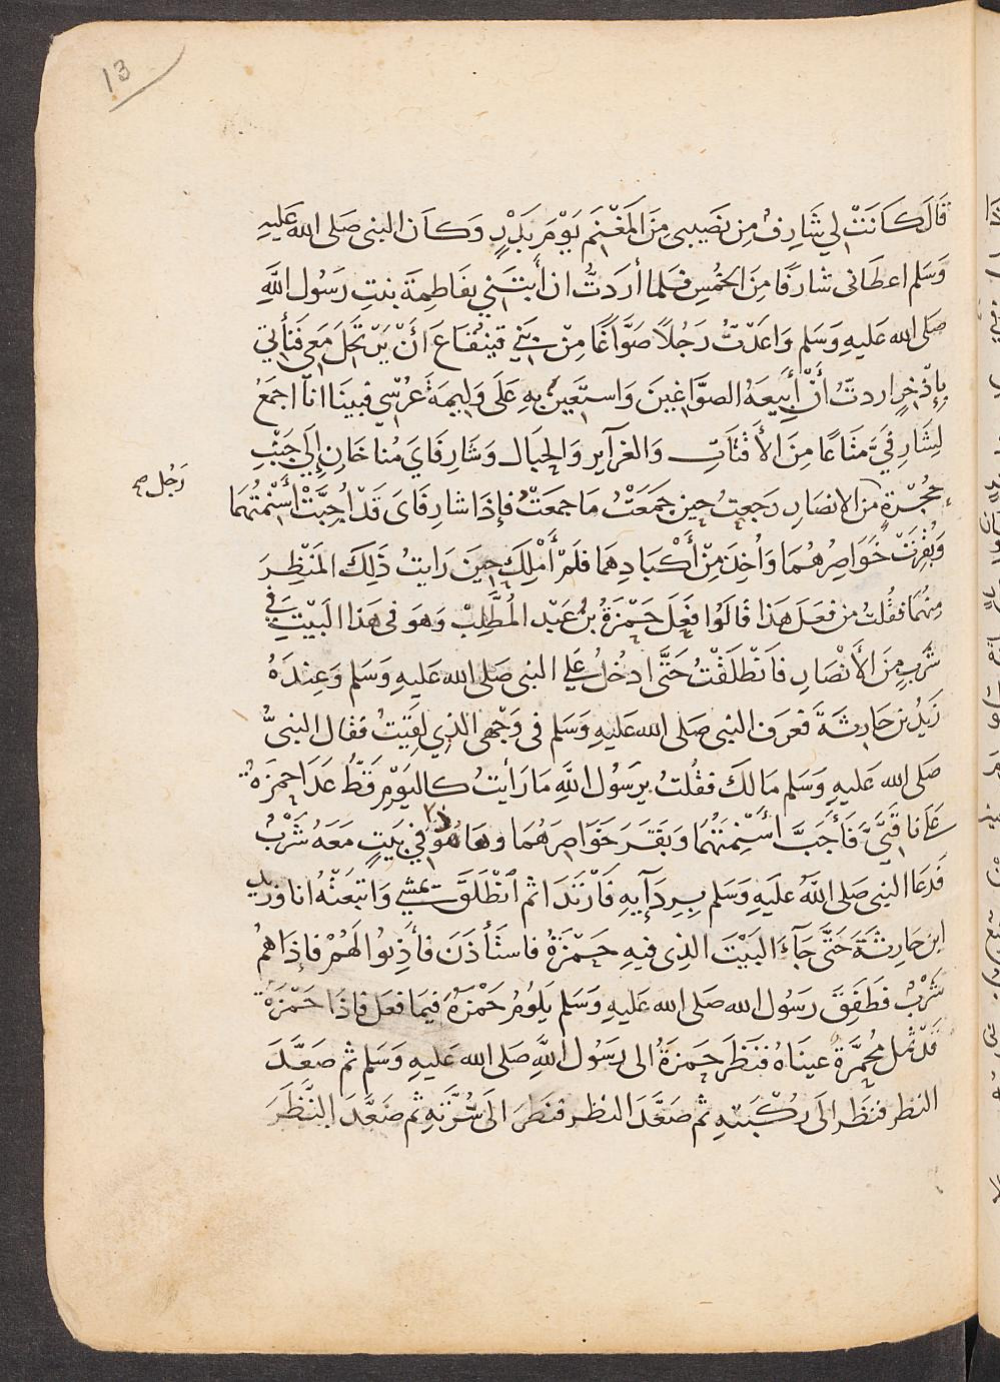 13
قَالَ كَانَتْ لي شَارِفٌ مِن نَصِيبي مِنَ المَغْنَمِ يَوْمَ بَدْرٍ وَكَان النبى صَلى الله عَليهِ
وَسَلم اعطَانى شارفًا مِنَ الخمُسِ فلما أرَدتُّ ان أَبتَنَي بفَاطِمَةَ بنتِ رَسُول اللَّهِ
صَلى الله عَليهِ وَسَلم وَاعَدْتُّ رَجُلاً صَوَّاغًا مِنْ بَنِي قينُقاعَ انْ يَرْتحِلَ مَعي فنَأتي
بإذْخِرٍ اردتّ أَنْ أَبِيعَهُ الصوَّاغِينَ وَاستَعِينَ بهِ عَلَى وَليمَةِ عُرْسِي فبينَا انَا اجمَعُ
لِشَارِفَيَّ مَتَاعًا مِنَ الأَقْتَابِ وَالغرَآيرِ وَالحِبَال وَشَارِفَايَ مُناخَانِ إلَى جَنْبِ
حُجْرَةِ مِنَ الانصَارِ رَجَعتُ حِينَ جمَعَتْ مَا جمَعَتْ فإذَا شارِفَاىَ قَدْ اُجِبَّتْ أَسْنمتُهمَا
رَجُل صح
وَبُقِرَتْ خَوَاصِرُهُمَا وَاُخِذَ مِنْ أَكْبَادِهِمَا فلَمْ أَمْلِكْ حِينَ رَايتُ ذَلِكَ المَنْظرَ
مِنْهُمَا فقُلتُ من فعَلَ هَذَا قَالُوا فعَلَ حَمْزَةُ بْنُ عَبْد المُطَّلِبْ وَهوَ فى هَذا البَيْتِ في
شَرْبٍ مِنَ الأَنْصَارِ فَانْطلَقْتُ حَتَّى ادخُلُ عَلي النبى صَلى الله عَليهِ وَسَلم وَعِندَهُ
زَيدُ بن حَارِثةَ فَعَرَف النبى صَلى الله عَليهِ وَسَلم فى وَجْهى الذِي لقِيتُ فقَال النبىُّ
صَلى الله عَليهِ وَسَلم مَالكَ فقلتُ يرَسُول اللَّهِ مَا رَأيتُ كاليَوْمِ قطُّ عَدَا حمزَةُ
عَلَى نَاقَتَيَّ فَأَجَبَّ أَسْنِمَتَهُمَا وَبَقَرَ خَوَاصِرَهُمَا وهَا هُوَ ذا فِي بَيتٍ مَعَهُ شَرْبٌ
فَدعَا النبى صَلى اللَّهُ عَليهِ وَسَلم بِرِدَآيهِ فَارْتَدَا ثم انْطَلَقَ يمشِي وَاتبَعْتُهُ انا وَزيد
ابن حَارِثَةَ حَتَّى جَآءَ البَيْتَ الذِى فيهِ حَمْزَةُ فاستَأْذَنَ فأذِنوا لهُمْ فإذَا هُمُ
شَرْبٌ فَطَفِقَ رَسُول الله صَلى الله عَليهِ وَسَلم يَلُومُ حَمْزَةَ فِيمَا فعَلَ فاذَا حَمْزَةُ
قَدْ ثمِلَ مُحْمَرَّةً عينَاهُ فنَظَرَ حَمزةُ الى رَسُول اللَّهِ صَلى الله عَليهِ وَسَلم ثم صَعَّدَ
النظر فنظَر الَى رُكْبَتِهِ ثم صَعَّدَ النظر فنظَرَ الَى سُرَّتِهِ ثم صَعَّدَ النَّظَرَ